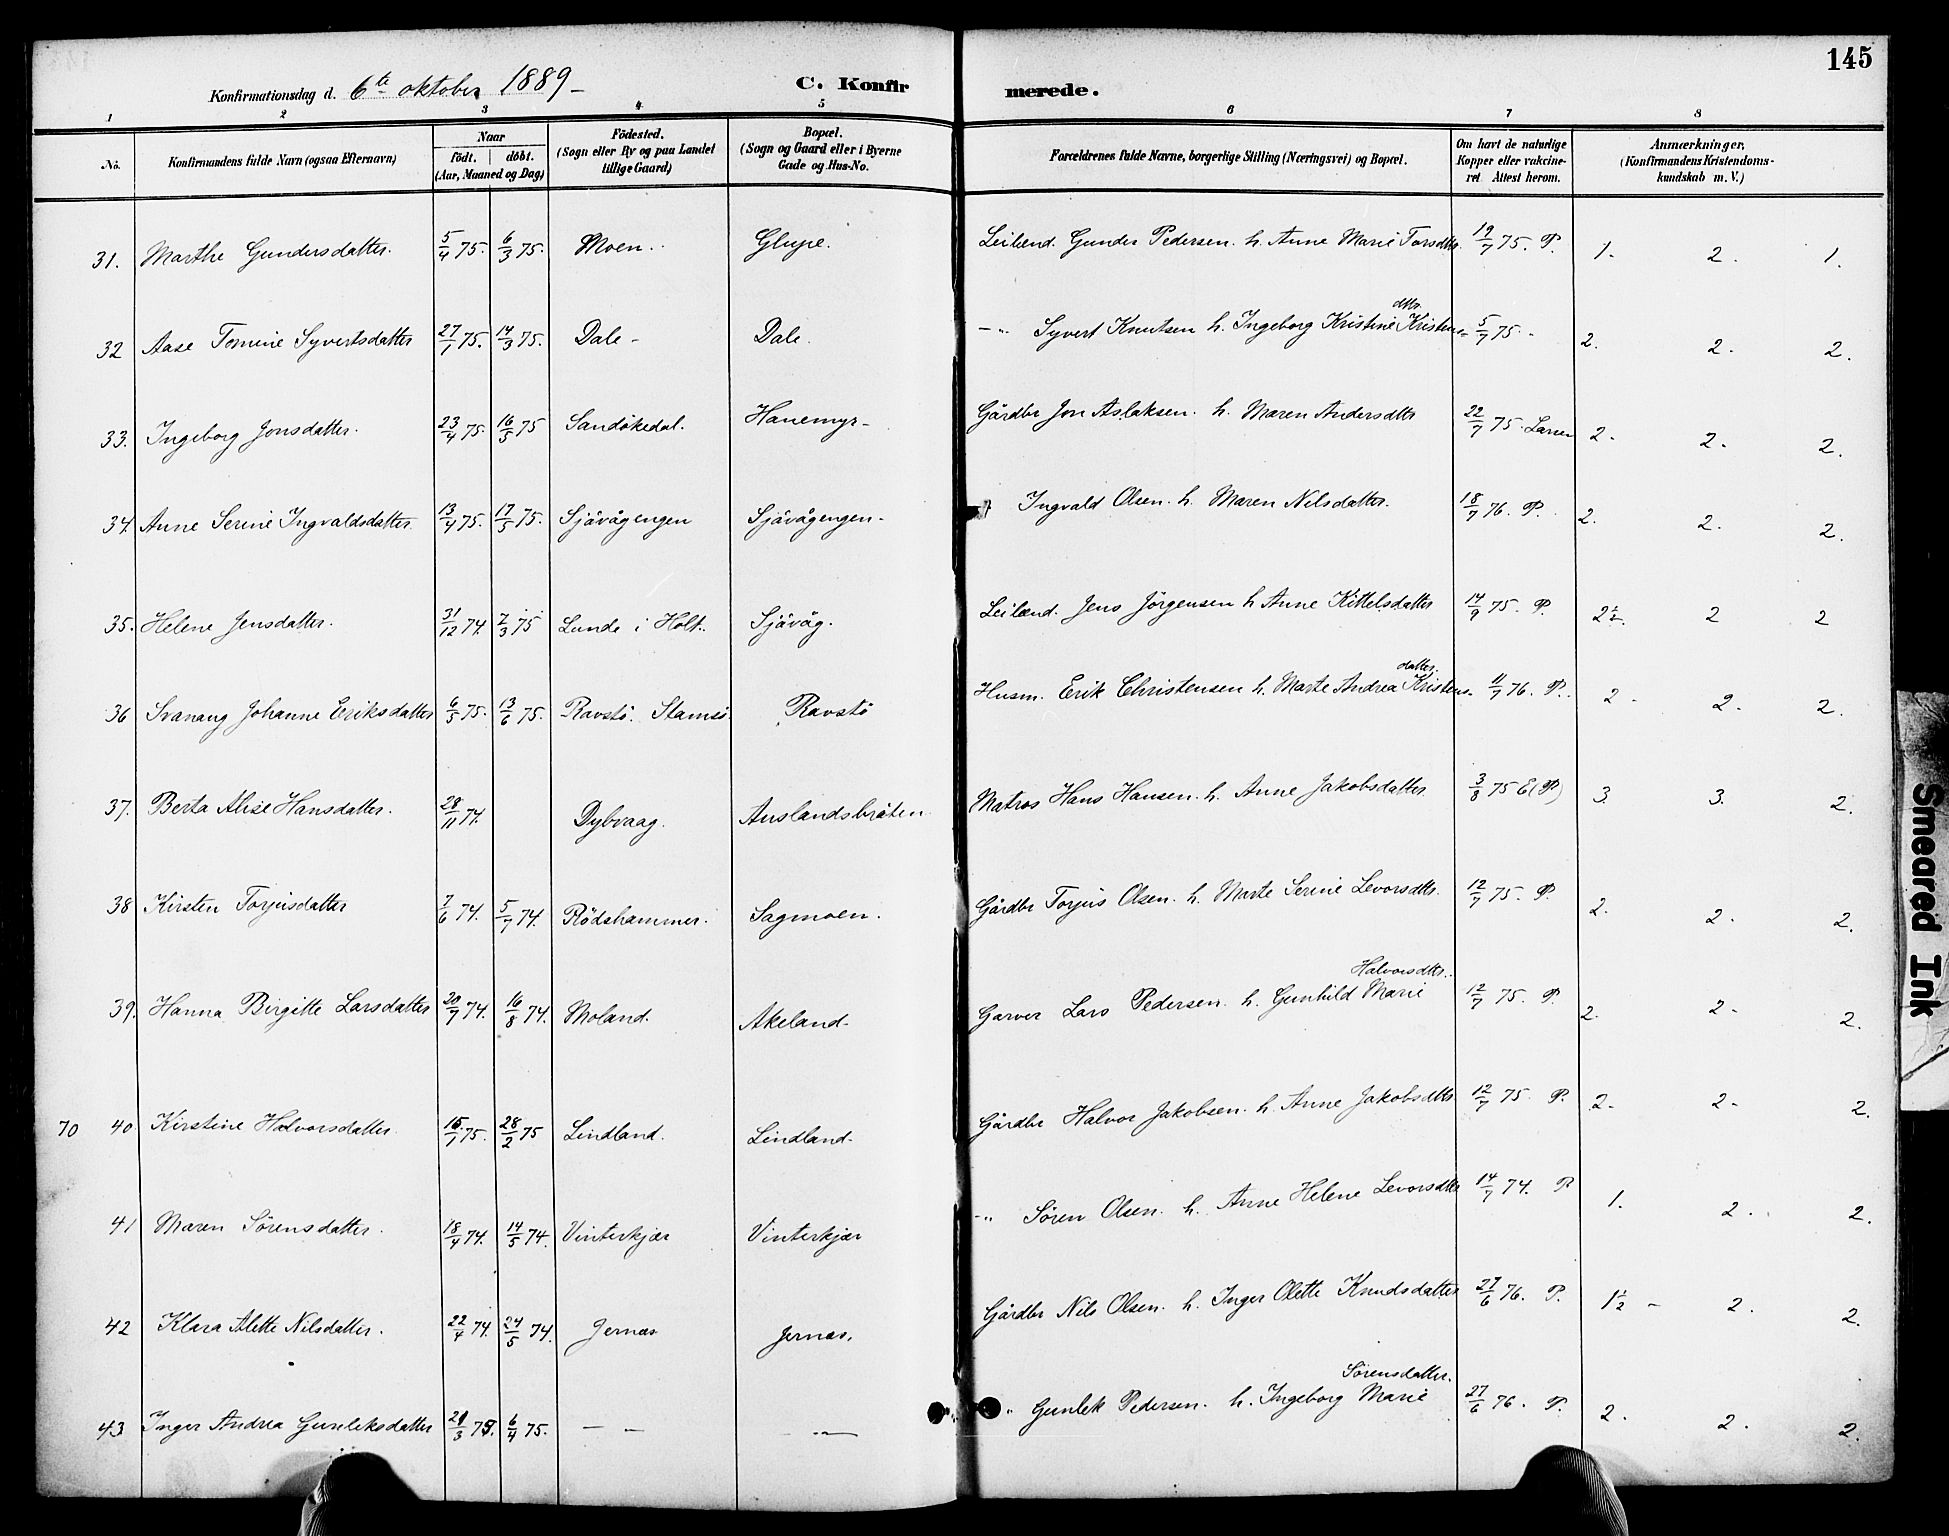 145
Konfirmationsdag d. 6te oktober 1889 – C. Konfirmerede.
1 2 3 4 5 6 7 8
No. Konfirmandens fulde Navn (ogsaa Efternavn) Naar födt. döbt. (Aar, Maaned og Dag) Födested. (Sogn eller By og paa Landet tillige Gaard) Bopæl. (Sogn og Gaard eller i Byerne Gade og Hus-No. Forældrenes fulde Navne, borgerlige Stilling (Næringsvei) og Bopæl. Om havt de naturlige Kopper eller vakcineret Attest herom. Anmærkninger, (Konfirmandens Kristendomskundskab m. V.)
31. Marthe Gundersdatter. 5/4 75. 6/3 75. Moen. Glupe. Leilænd. Gunder Pedersen. h. Anne Marie Torsdtr. 19/7 75. P. 1. 2. 1.
32 Aase Tomine Syvertsdatter 27/1 75. 14/3 75. Dale – Dale. –"– Syvert Knutsen h. Ingeborg Kristine Kristensdtr. 5/7 75 – 2. 2. 2.
33. Ingeborg Jonsdatter. 23/4 75. 16/5 75 Sandökedal. Hanemyr – Gårdbr Jon Aslaksen. h. Maren Andersdtr 22/7 75. Larsen 2. 2. 2.
34. Anne Serine Ingvaldsdatter 13/4 75. 17/5 75. Sjävågengen Sjävågengen – Ingvald Olsen. h. Maren Nilsdatter. 18/7 76. P. 2. 2. 2.
35. Helene Jensdatter. 31/12 74. 7/3 75 Lunde i Holt. Sjävåg. Leilænd. Jens Jörgensen h Anne Kittelsdatter 14/9 75. P. 2½. 2 2
36 Svanaug Johanne Eriksdatter 6/5 75. 13/6 75. Ravstö. Stamsö. Ravstö Husm. Erik Christensen h. Marte Andrea Kristensdatter. 11/7 76. P. 2 – 2. 2.
37. Berta Alise Hansdatter. 28/11 74. Dybvaag. Auslandsbråten. Matros Hans Hansen. h. Anne Jakobsdatter 3/8 75 E (P) 3. 3. 2.
38 Kirsten Torjusdatter 7/6 74. 5/7 74. Rödshammer. Sagmoen. Gårdbr Torjus Olsen. h. Marte Serine Levorsdtr. 12/7 75. P. 2. 2. 2.
39. Hanna Birgitte Larsdatter 20/7 74. 16/8 74. Moland. Akeland – Garver Lars Pedersen. h. Gunhild Marie Halvorsdtr. 12/7 75. P. 2. 2 – 2.
70 40 Kirstine Halvorsdatter. 15/1 75. 28/2 75 Lindland. Lindland – Gårdbr Halvor Jakobsen. h. Anne Jakobsdtr 12/7 75. P. 2 – 2 – 2.
41 Maren Sörensdatter. 18/4 74. 14/5 74. Vinterkjær Vinterkjær –"– Sören Olsen. h. Anne Helene Levorsdtr 14/7 74. P 1. 2. 2.
42 Klara Alette Nilsdatter. 22/4 74. 24/5 74. Jernæs Jernæs. Gårdbr Nils Olsen. h. Inger Olette Knudsdatter 27/6 76. P. 1½ – 2. 2.
43 Inger Andrea Gunleksdatter 21/3 75. 6/4 75. — — –"— " Gunlek Pedersen. h. Ingeborg Marie Sörensdatter. 27/6 76. P. 2. 2. 2.
Smeared Ink